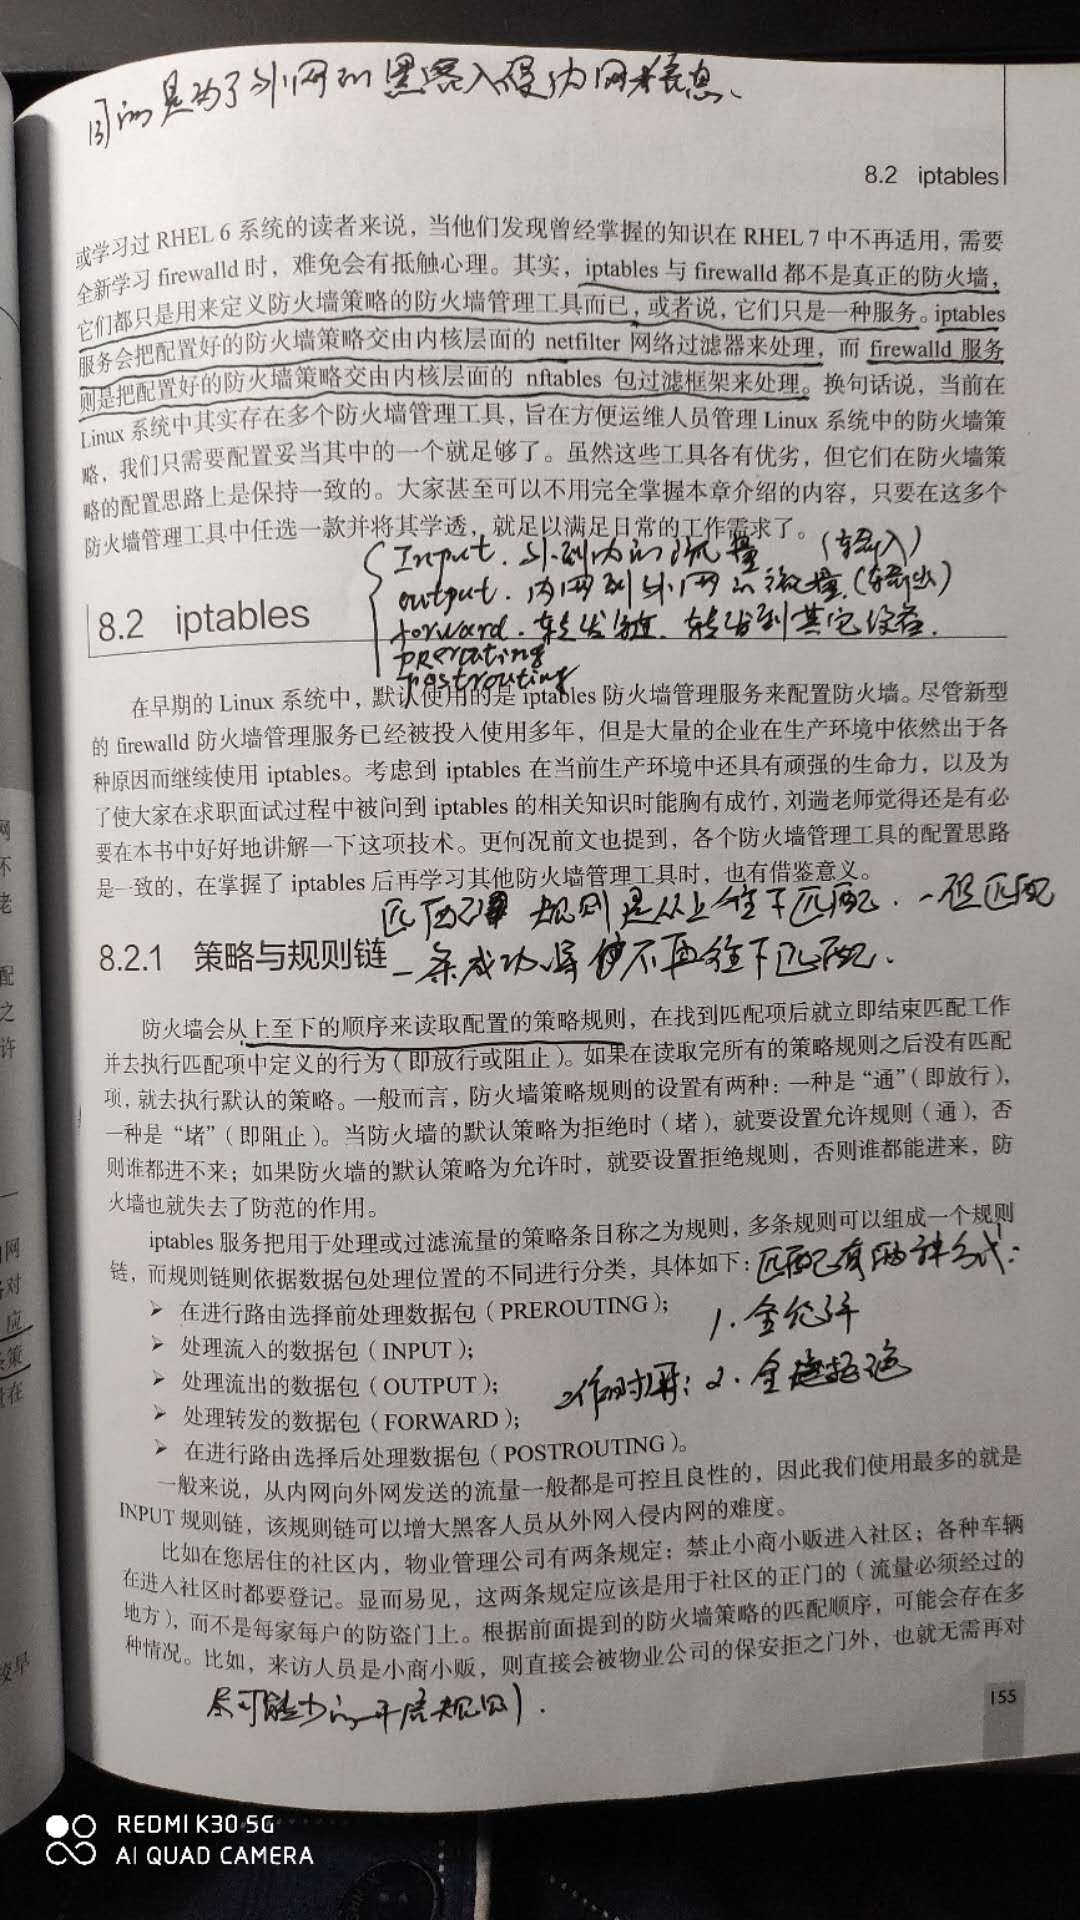 是为了外网的黑客入侵内网
8.2 iptables
或学习过 RHEL 6 系统的读者来说，当他们发现曾经掌握的知识在 RHEL 7 中不再适用，需要
全新学习 firewalld 时，难免会有抵触心理。其实，iptables 与 firewalld 都不是真正的防火墙，
它们都只是用来定义防火墙策略的防火墙管理工具而已，或者说，它们只是一种服务。iptables
服务会把配置好的防火墙策略交由内核层面的 netfilter 网络过滤器来处理，而 firewalld 服务
则是把配置好的防火墙策略交由内核层面的 nftables 包过滤框架来处理。换句话说，当前在
Linux 系统中其实存在多个防火墙管理工具，旨在方便运维人员管理 Linux 系统中的防火墙策
略，我们只需要配置妥当其中的一个就足够了。虽然这些工具各有优劣，但它们在防火墙策
略的配置思路上是保持一致的。大家甚至可以不用完全掌握本章介绍的内容，只要在这多个
防火墙管理工具中任选一款并将其学透，就足以满足日常的工作需求了。
Input. 外到内的流量（输入）
output. 内网到外网的流量.（输出）
forward. 转发 转发到其它设备.
prerouting
postrouting
8.2 iptables
在早期的 Linux 系统中，默认使用的是 iptables 防火墙管理服务来配置防火墙。尽管新型
的 firewalld 防火墙管理服务已经被投入使用多年，但是大量的企业在生产环境中依然出于各
种原因而继续使用 iptables。考虑到 iptables 在当前生产环境中还具有顽强的生命力，以及为
了使大家在求职面试过程中被问到 iptables 的相关知识时能胸有成竹，刘遄老师觉得还是有必
要在本书中好好地讲解一下这项技术。更何况前文也提到，各个防火墙管理工具的配置思路
是一致的，在掌握了 iptables 后再学习其他防火墙管理工具时，也有借鉴意义。
匹配 规则是从上往下匹配. 一但匹配
8.2.1 策略与规则链
一条成功 不再往下匹配.
防火墙会从上至下的顺序来读取配置的策略规则，在找到匹配项后就立即结束匹配工作
并去执行匹配项中定义的行为（即放行或阻止）。如果在读取完所有的策略规则之后没有匹配
项，就去执行默认的策略。一般而言，防火墙策略规则的设置有两种：一种是“通”（即放行），
一种是“堵”（即阻止）。当防火墙的默认策略为拒绝时（堵），就要设置允许规则（通），否
则谁都进不来；如果防火墙的默认策略为允许时，就要设置拒绝规则，否则谁都能进来，防
火墙也就失去了防范的作用。
iptables 服务把用于处理或过滤流量的策略条目称之为规则，多条规则可以组成一个规则
链，而规则链则依据数据包处理位置的不同进行分类，具体如下：
匹配有两种方式：
➢ 在进行路由选择前处理数据包（PREROUTING）；
1. 全允许
➢ 处理流入的数据包（INPUT）；
➢ 处理流出的数据包（OUTPUT）；
工作时用：2. 全拒绝
➢ 处理转发的数据包（FORWARD）；
➢ 在进行路由选择后处理数据包（POSTROUTING）。
一般来说，从内网向外网发送的流量一般都是可控且良性的，因此我们使用最多的就是
INPUT 规则链，该规则链可以增大黑客人员从外网入侵内网的难度。
比如在您居住的社区内，物业管理公司有两条规定：禁止小商小贩进入社区；各种车辆
在进入社区时都要登记。显而易见，这两条规定应该是用于社区的正门的（流量必须经过的
地方），而不是每家每户的防盗门上。根据前面提到的防火墙策略的匹配顺序，可能会存在多
种情况。比如，来访人员是小商小贩，则直接会被物业公司的保安拒之门外，也就无需再对
尽可能少的开启规则.
155
REDMI K30 5G
AI QUAD CAMERA